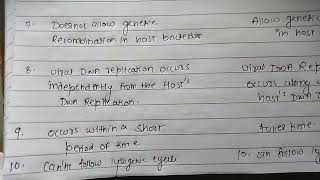 7. Doesnot allow genetic Allow genetic
Recombination in host bacterium in host
8. viral DNA replication occurs viral DNA Rep
independently from the Host's occurs along
DNA Replication. host's DNA
9. occurs within a short takes time.
period of time
10. Can't follow lysogenic cycle 10. can follow ly